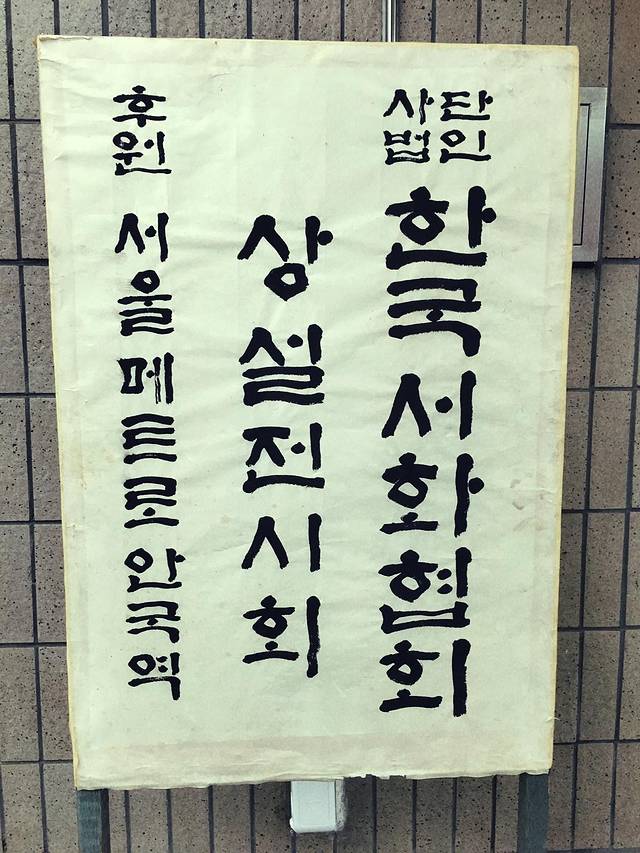 사단
법인
한국서화협회
상설전시회
후원 서울메트로 안국역